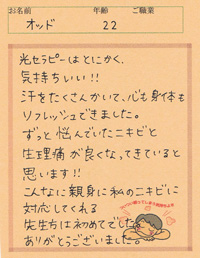 お名前 年齢 ご職業
オッド 22
光セラピーはとにかく、
気持ちいい!!
汗をたくさんかいて、心も身体も
リフレッシュできました。
ずっと悩んでいたニキビと
生理痛が良くなってきていると
思います!!
こんなに親身に私のニキビに
対応してくれる
先生方は初めてでした
ありがとうございました。